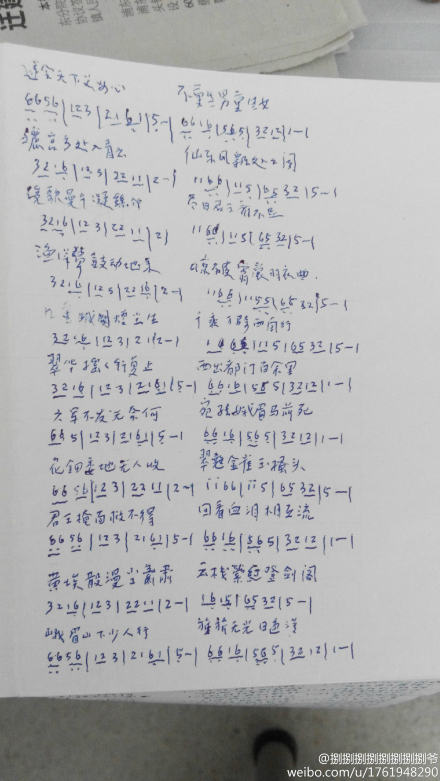 遂令天下父母心 不重生男重生女
6656|123|2161|5-| 6616|565|3212|1-|
骊宫高处入青云 仙乐风飘处处闻
3216|123|2211|2-| 1166|115|6532|5-|
缓歌慢舞凝丝竹 尽日君王看不足
3216|123|2211|2| 1166|115|6532|5-|
渔阳鼙鼓动地来 惊破霓裳羽衣曲
3216|125|2216|2-| 1166|1155|6532|5-|
九重城阙烟尘生 千乘万骑西南行
翠华摇摇行复止 西出都门百余里
3216|123|2161|5-| 6616|565|3212|1-|
六军不发无奈何 宛转蛾眉马前死
6656|123|2161|5-| 6616|565|3212|1-|
花钿委地无人收 翠翘金雀玉搔头
6656|123|2211|2-| 1166|115|6532|5-|
君王掩面救不得 回看血泪相和流
6656|123|2161|5-| 6616|565|3212|1-|
黄埃散漫风萧萧 云栈萦纡登剑阁
3216|123|2211|2-| 1615|6532|5-|
峨眉山下少人行 旌旗无光日色薄
6656|123|2161|5-| 6616|565|3212|1-|
@捌捌捌捌捌捌捌捌爷
weibo.com/u/1761948290